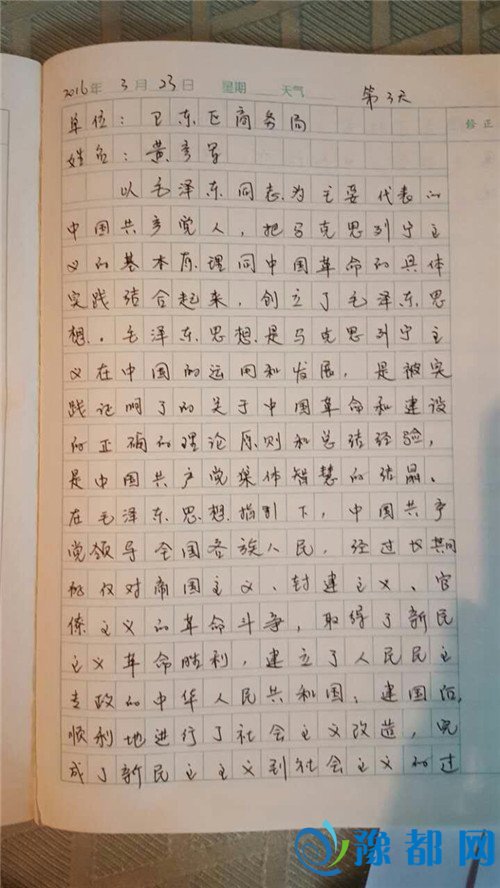 2016年 3月 23日 星期 天气 第3天
修正
单位：卫东区商务局
姓名：黄彦军
以毛泽东同志为主要代表的
中国共产党人，把马克思列宁主
义的基本原理同中国革命的具体
实践结合起来，创立了毛泽东思
想。毛泽东思想是马克思列宁主
义在中国的运用和发展，是被实
践证明了的关于中国革命和建设
的正确的理论原则和总结经验，
是中国共产党集体智慧的结晶。
在毛泽东思想指引下，中国共产
党领导全国各族人民，经过长期
对帝国主义、封建主义、官
僚主义的革命斗争，取得了新民
主义革命胜利，建立了人民民主
专政的中华人民共和国；建国后，
顺利地进行了社会主义改造，完
成了新民主主义到社会主义的过
豫都网